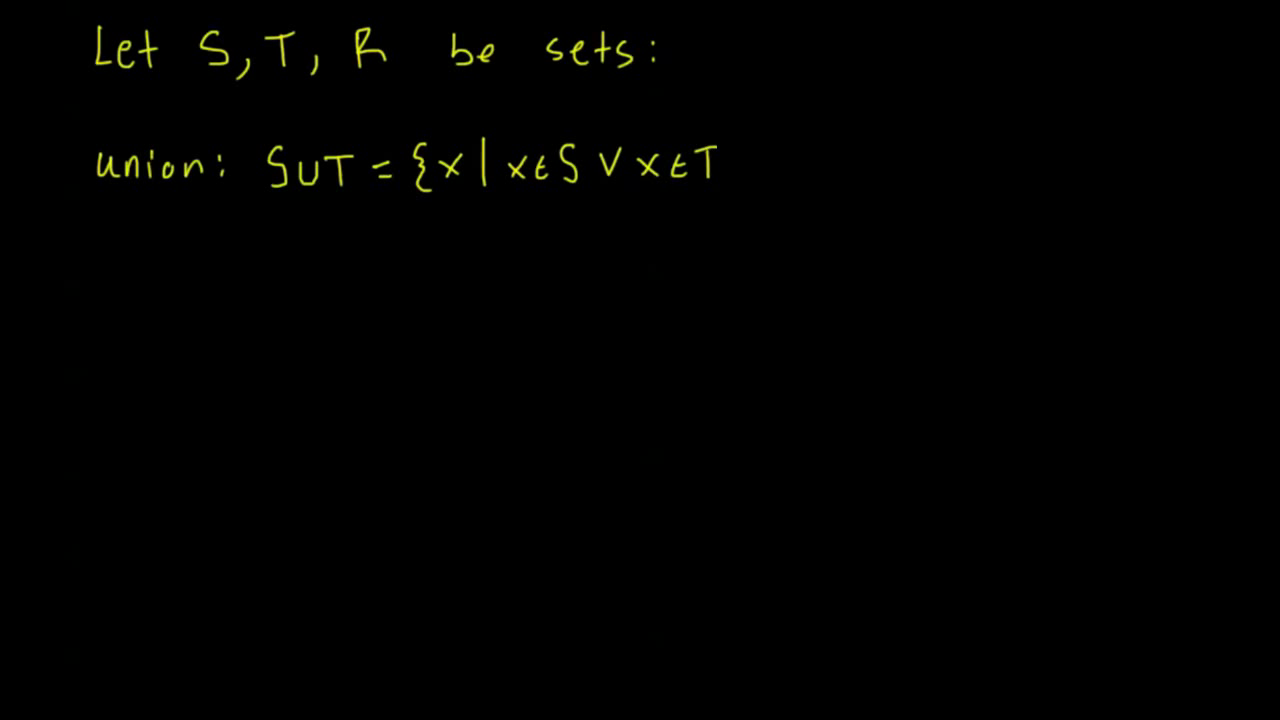 Let S, T, R be sets:
union: S∪T = {x | x∈S ∨ x∈T